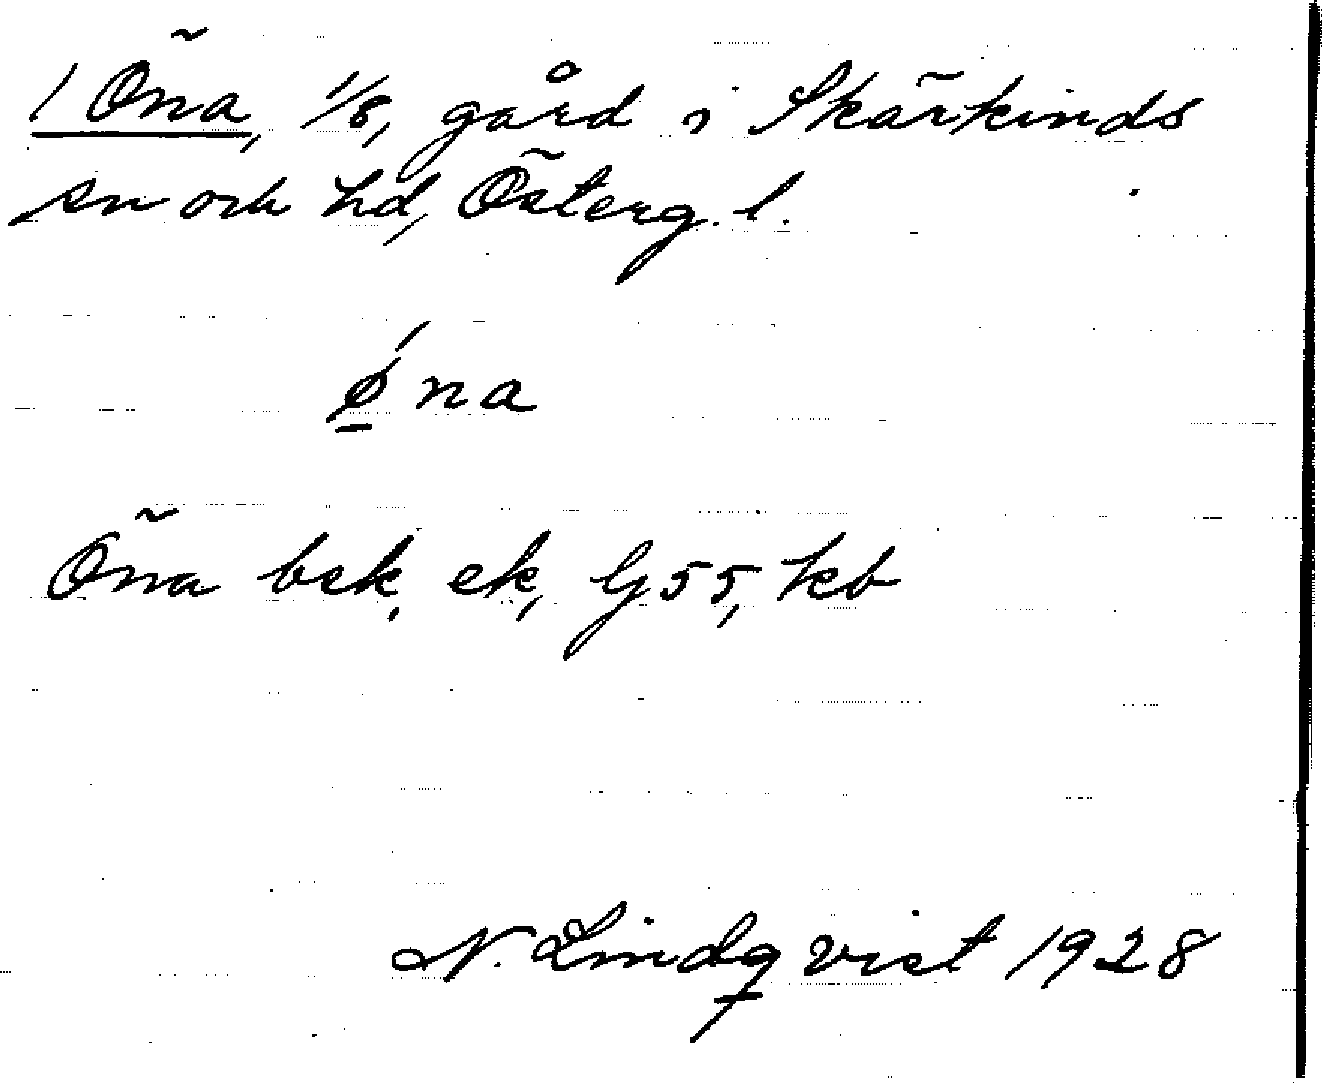 1 Öna, 1/8, gård i Skärkinds
sn och hd, Österg. l.
ǿ̱na
Öna bek, ek, G 55, kb
N. Lindqvist 1928